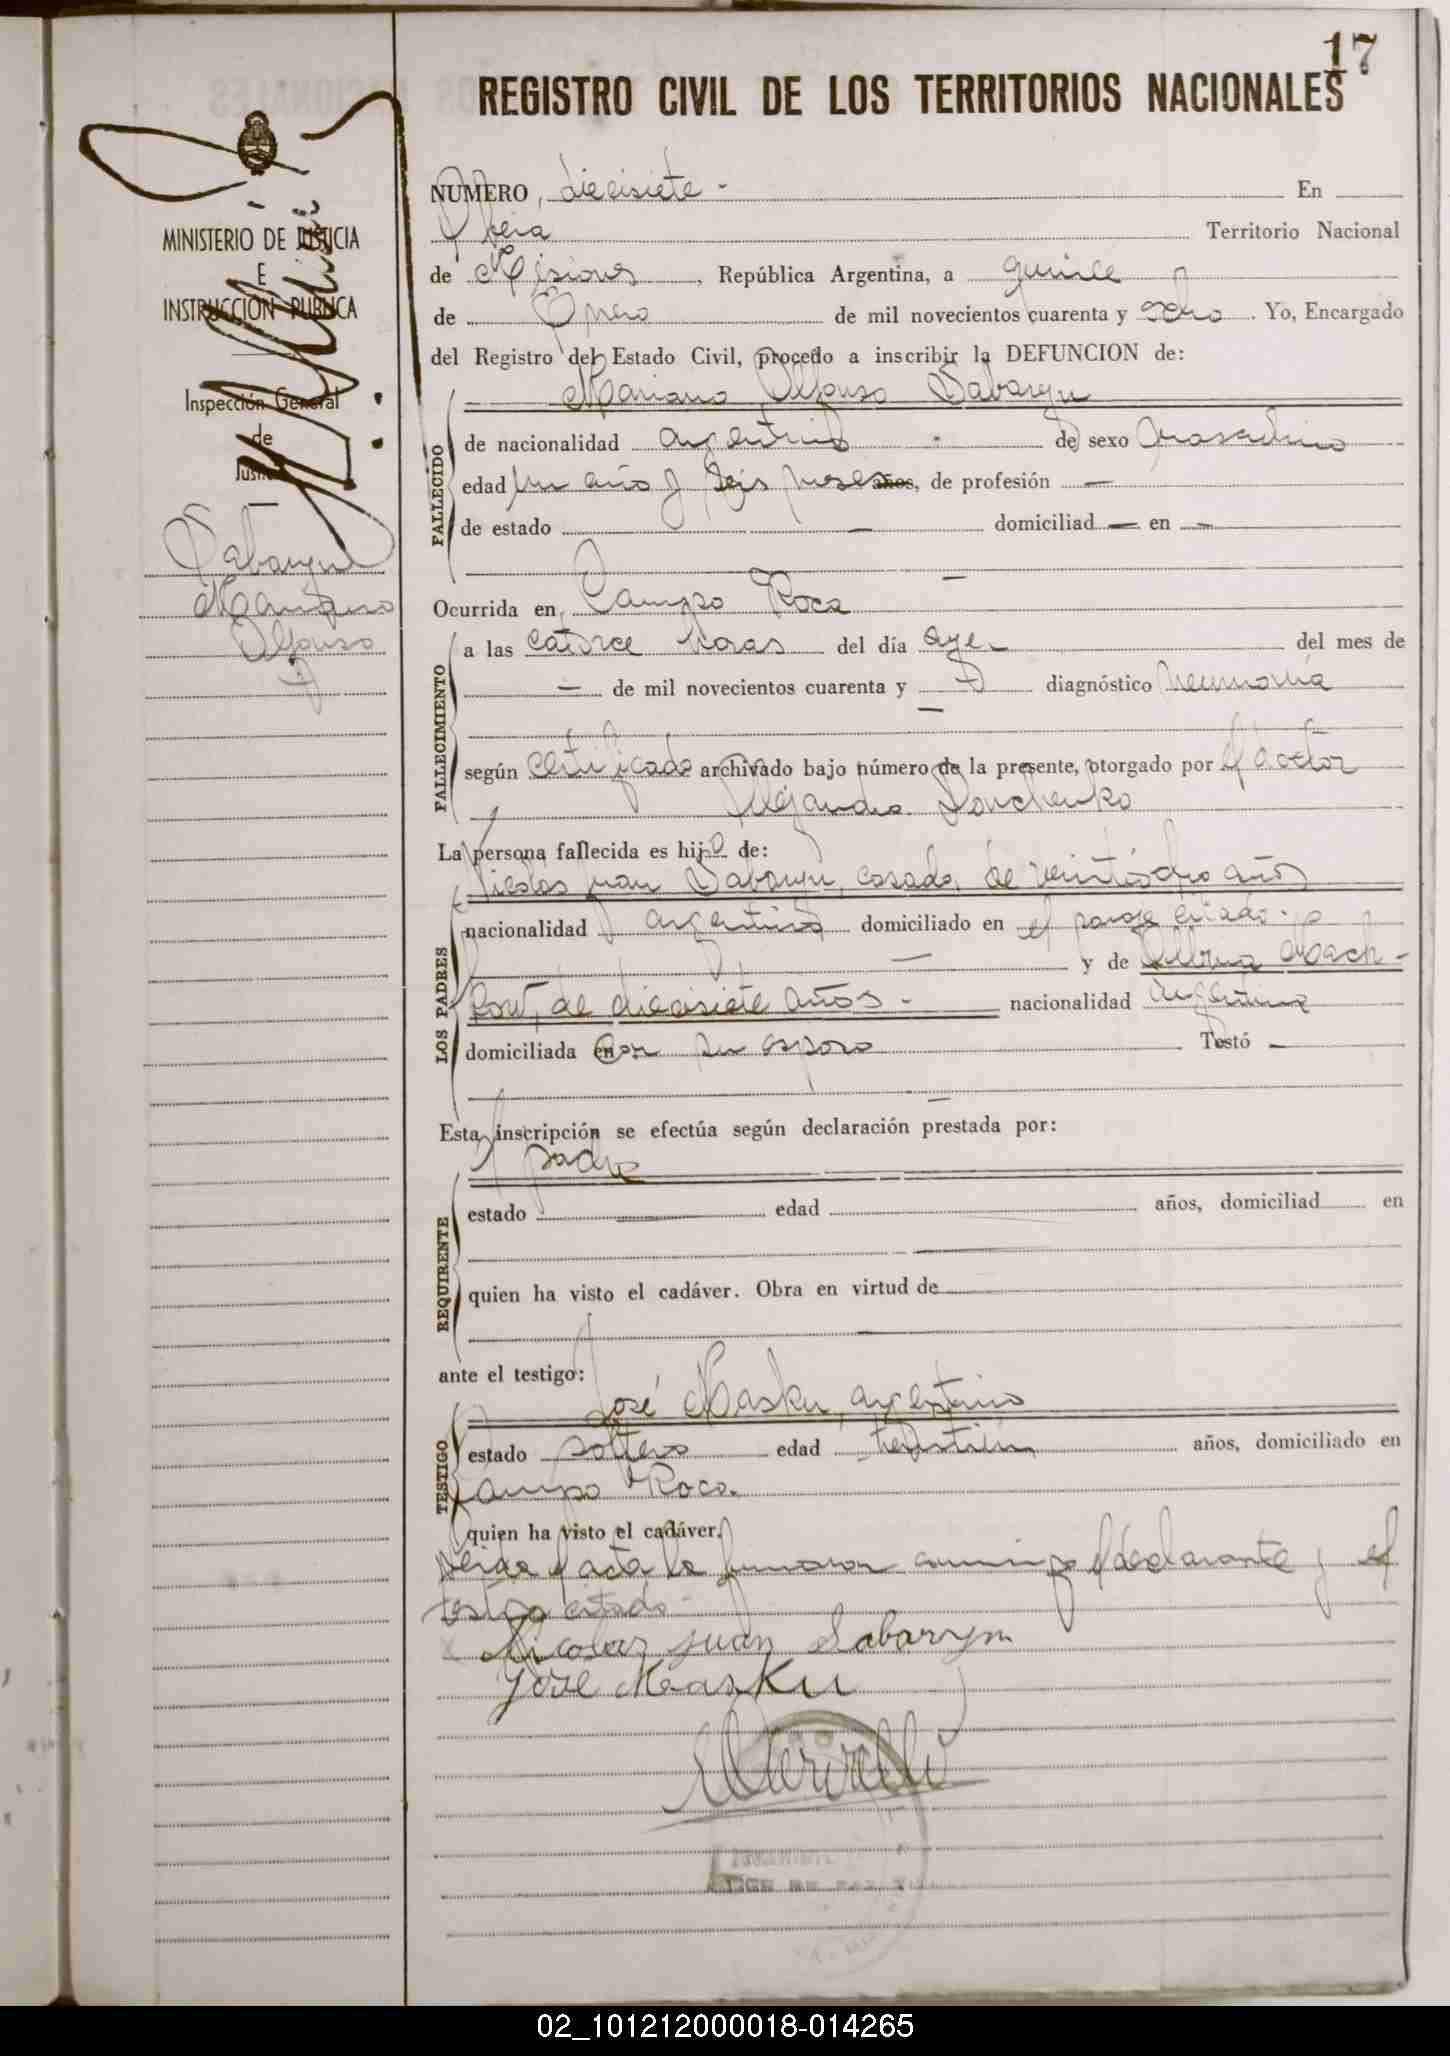 17
REGISTRO CIVIL DE LOS TERRITORIOS NACIONALES
MINISTERIO DE JUSTICIA
E
INSTRUCCIÓN PUBLICA
Inspección General
de
Justicia
Sabaryn
Mariano
Alfonso
NUMERO diecisiete - En
Oberá Territorio Nacional
de Misiones, República Argentina, a quince
de Enero de mil novecientos cuarenta y ocho. Yo, Encargado
del Registro del Estado Civil, procedo a inscribir la DEFUNCION de:
Mariano Alfonso Sabaryn
FALLECIDO
de nacionalidad argentino de sexo masculino
edad un año y seis meses años, de profesión —
de estado — domiciliad — en —
Ocurrida en Campo Roca
FALLECIMIENTO
a las catorce horas del día ayer del mes de
— de mil novecientos cuarenta y diagnóstico neumonía
según certificado archivado bajo número de la presente, otorgado por el doctor
Alejandro
La persona fallecida es hijo de:
LOS PADRES
Nicolas Juan Sabaryn, casado, de veintiocho años
nacionalidad argentino domiciliado en el paraje citado.
y de
de diecisiete años - nacionalidad argentina
domiciliada en con su esposo Testó —
Esta inscripción se efectúa según declaración prestada por:
el padre
REQUIRENTE
estado edad años, domiciliad en
quien ha visto el cadáver. Obra en virtud de
ante el testigo:
José Masku, argentino
TESTIGO
estado soltero edad años, domiciliado en
Campo Roca.
quien ha visto el cadáver.
Leida el acta la firmaron conmigo el declarante y el
testigo citado.
Nicolas Juan Sabaryn
José Masku
02_101212000018-014265